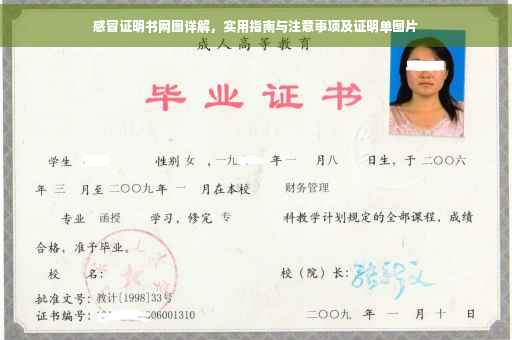 感冒证明书网图详解，实用指南与注意事项及证明单图片
成人高等教育
毕业证书
学生 性别 女 ，一九 年 一 月八 日生，于 二〇〇六
年 三 月至 二〇〇九年 一 月在本校 财务管理
专业 函授 学习，修完 专 科教学计划规定的全部课程，成绩
合格，准予毕业。
校 名： 校（院）长：
批准文号：教计[1998]33号
证书编号： 06001310 二〇〇九 年 一 月 十 日